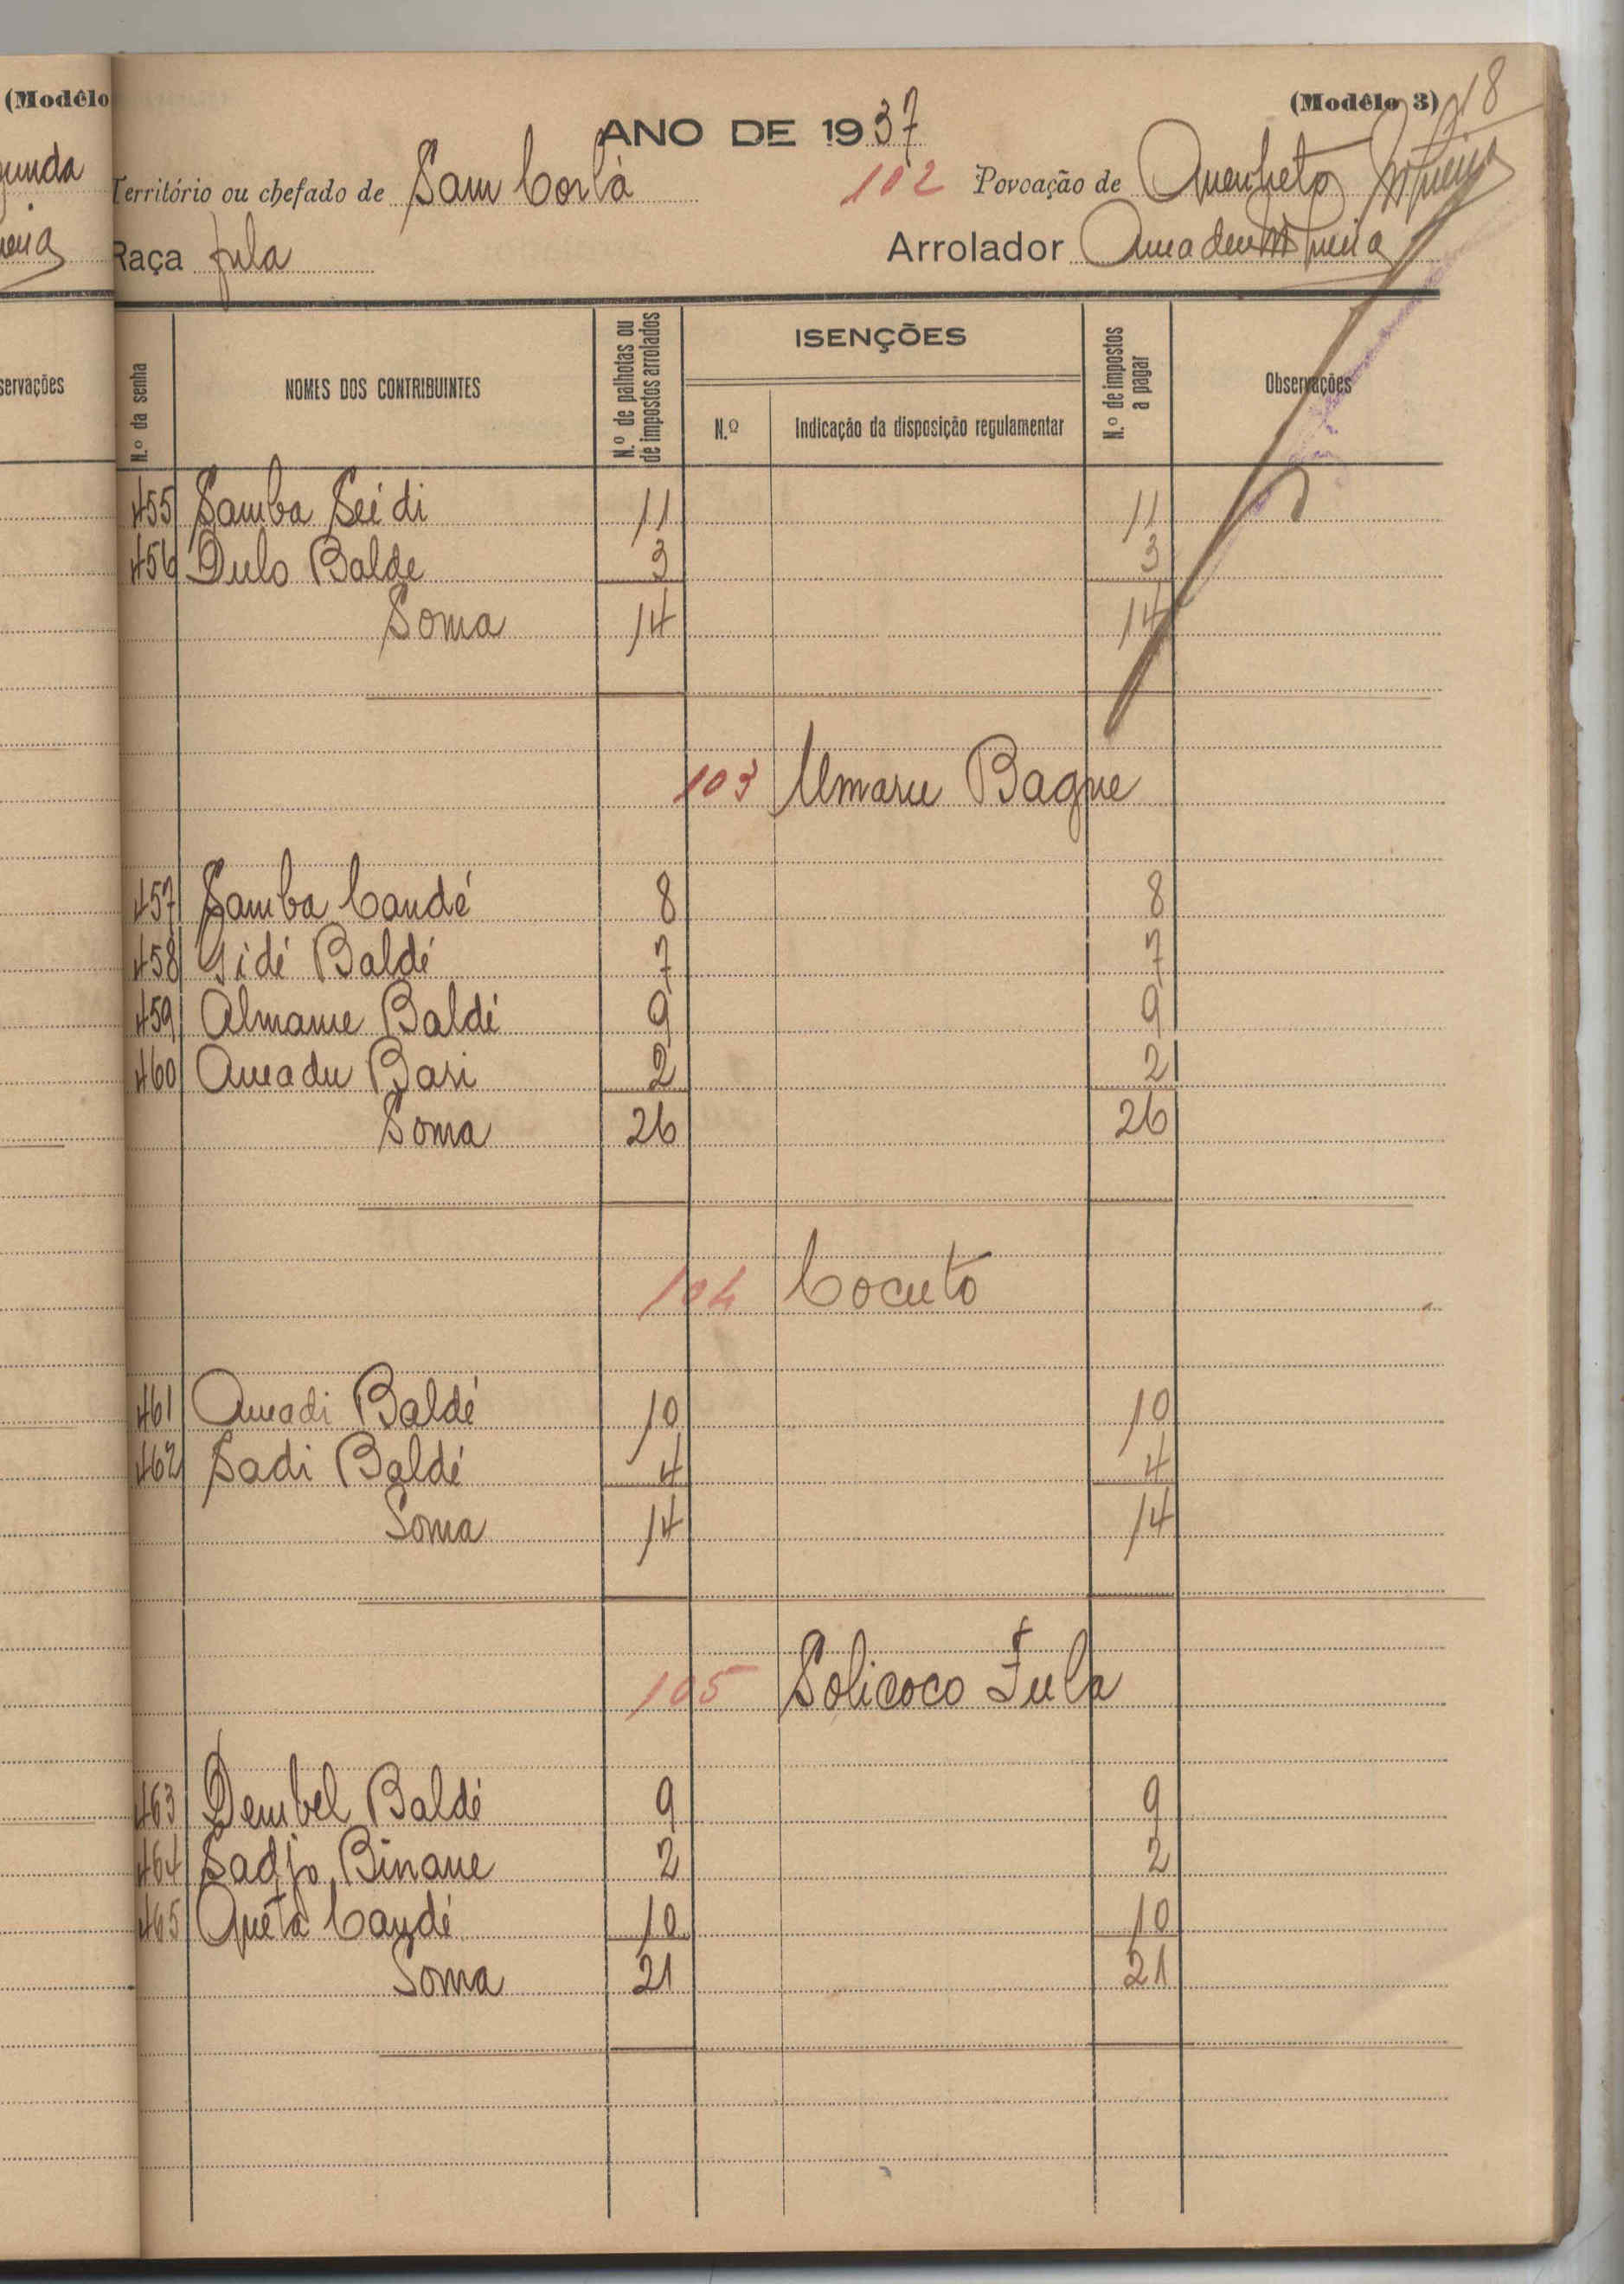 (Modêlo
(Modêlo 3) 18
ANO DE 1937
Território ou chefado de Sam Corlà 102 Povoação de
Raça fula Arrolador
servações
N.º da senha NOMES DOS CONTRIBUINTES N.º de palhotas ou de impostos arrolados ISENÇÕES N.º de impostos a pagar Observações
N.º Indicação da disposição regulamentar
455 Samba Seidi 11 11
456 Dulo Balde 3 3
Soma 14 14
103 Umaru Bague
457 Samba Candé 8 8
458 Gidé Baldé 7 7
459 Almame Baldé 9 9
460 Amadu Bari 2 2
Soma 26 26
104 Cocuto
461 Amadi Baldé 10 10
462 Sadi Baldé 4 4
Soma 14 14
105 Solicoco Fula
463 Dembel Baldé 9 9
464 Sadjo Binane 2 2
465 Quetà Candé 10 10
Soma 21 21